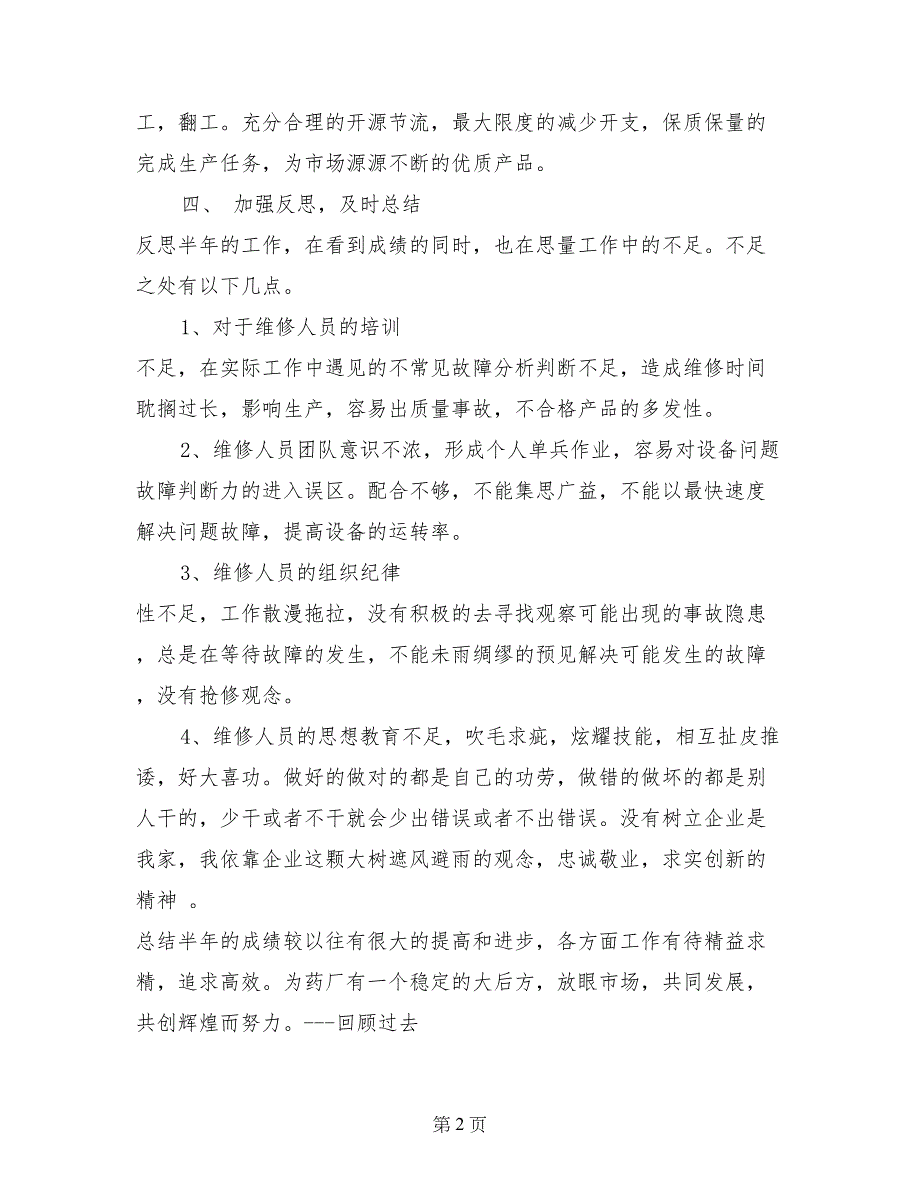 工，翻工。充分合理的开源节流，最大限度的减少开支，保质保量的
完成生产任务，为市场源源不断的优质产品。
四、 加强反思，及时总结
反思半年的工作，在看到成绩的同时，也在思量工作中的不足。不足
之处有以下几点。
1、对于维修人员的培训
不足，在实际工作中遇见的不常见故障分析判断不足，造成维修时间
耽搁过长，影响生产，容易出质量事故，不合格产品的多发性。
2、维修人员团队意识不浓，形成个人单兵作业，容易对设备问题
故障判断力的进入误区。配合不够，不能集思广益，不能以最快速度
解决问题故障，提高设备的运转率。
3、维修人员的组织纪律
性不足，工作散漫拖拉，没有积极的去寻找观察可能出现的事故隐患
，总是在等待故障的发生，不能未雨绸缪的预见解决可能发生的故障
，没有抢修观念。
4、维修人员的思想教育不足，吹毛求疵，炫耀技能，相互扯皮推
诿，好大喜功。做好的做对的都是自己的功劳，做错的做坏的都是别
人干的，少干或者不干就会少出错误或者不出错误。没有树立企业是
我家，我依靠企业这颗大树遮风避雨的观念，忠诚敬业，求实创新的
精神 。
总结半年的成绩较以往有很大的提高和进步，各方面工作有待精益求
精，追求高效。为药厂有一个稳定的大后方，放眼市场，共同发展，
共创辉煌而努力。---回顾过去
第 2 页